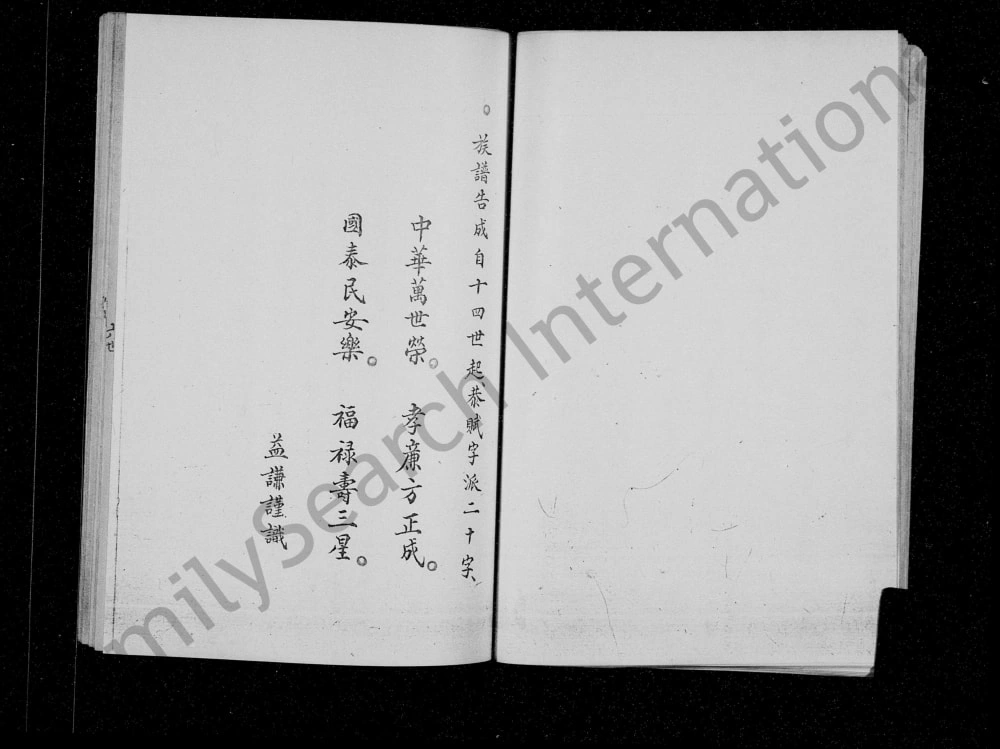 。族譜告成自十四世起恭賦字派二十字、
中華萬世榮。 孝廉方正成。
國泰民安樂。 福祿壽三星。
益謙謹識
milySearch International